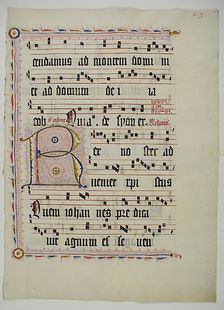 cendamus ad montem domi ni
et ad domum de i ia
cob Quia de syon ex
R ex no ster ad
ueniet xpi stus
Quem iohan nes pre dica
uit agnum es se uen